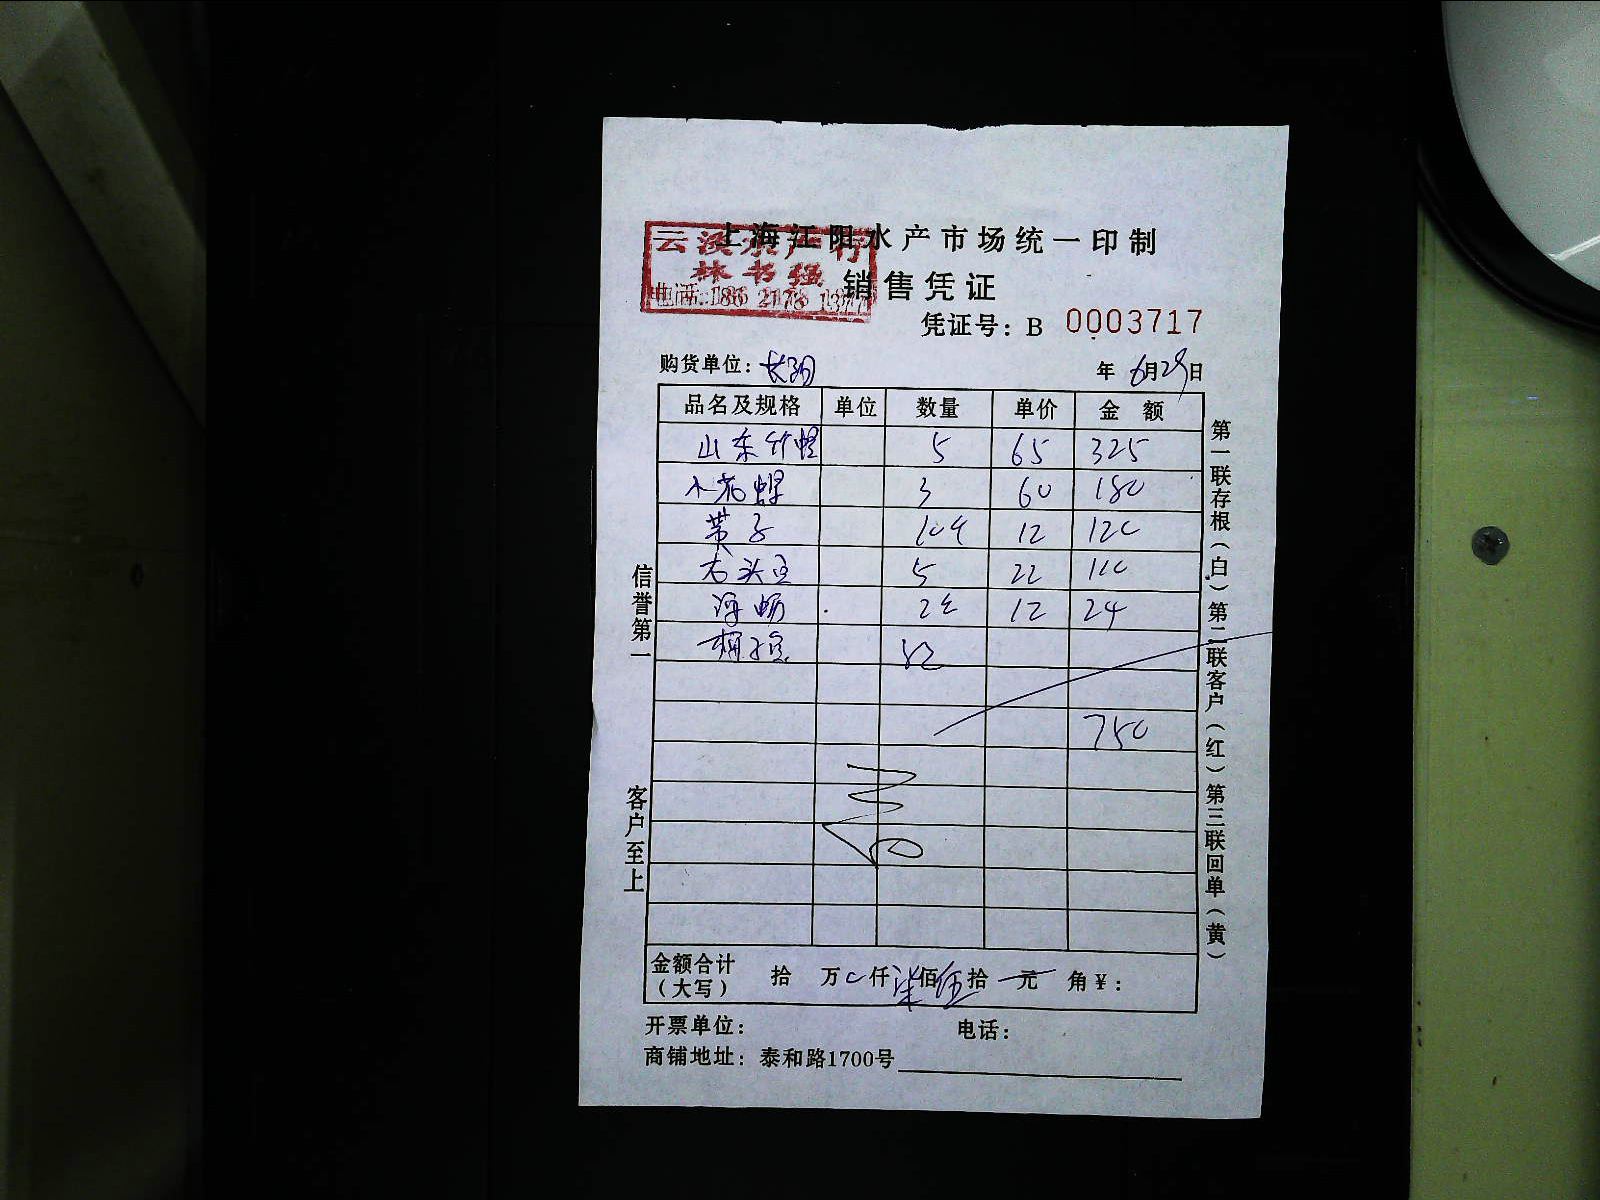 上海江阳水产市场统一印制
云溪水产行
林书强
电话:186 2178 1377
销售凭证
凭证号：B 0003717
购货单位：
年 6月29日
品名及规格 单位 数量 单价 金额
山东竹蛏 5 65 325
小花螺 3 60 180
黄子 10 12 120
5 22 110
2 12 24
750
金额合计（大写） 拾 万 0 仟 柒 佰 伍 拾 元 角 ￥：
开票单位： 电话：
商铺地址：泰和路1700号
信誉第一
客户至上
第一联存根（白）第二联客户（红）第三联回单（黄）